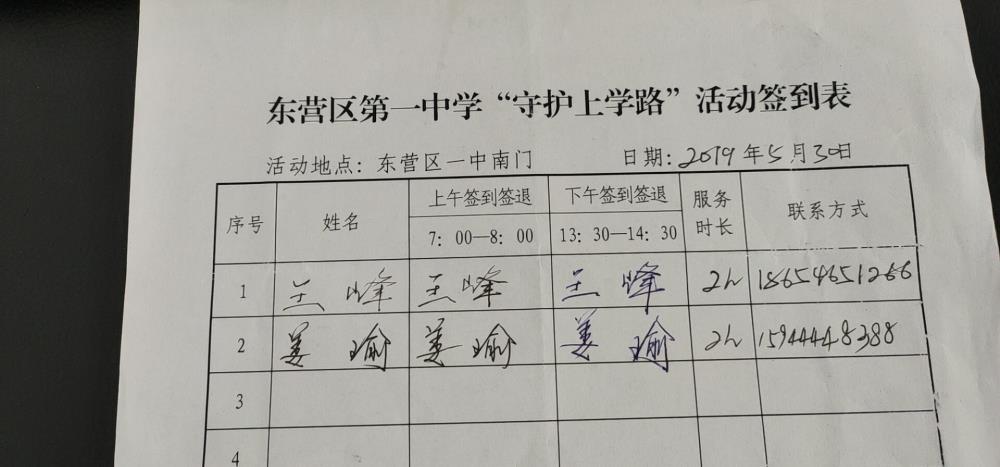 东营区第一中学“守护上学路”活动签到表
活动地点：东营区一中南门 日期：2019年5月30日
序号 姓名 上午签到签退 下午签到签退 服务时长 联系方式
7：00—8：00 13：30—14：30
1 王峰 王峰 王峰 2h 18654651266
2 姜瑜 姜瑜 姜瑜 2h 15944448388
3
4